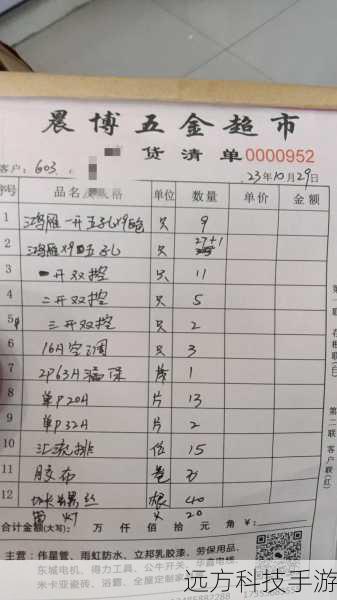 晨博五金超市
货清单 0000952
客户: 603. 23年10月29日
序号 品名 规格 单位 数量 单价 金额
1 鸿雁一开五孔 只 9
2 鸿雁 五孔 只 27+1
3 一开双控 只 11
4 二开双控 只 5
5 三开双控 只 2
6 16A空调 只 3
7 2P63A漏保 1
8 单P20A 片 13
9 单P32A 片 2
10 汇流排 位 15
11 胶布 卷
12 丝 根 40
20
合计金额(大写): 万 仟 佰 拾 元 角 ¥:
主营: 伟星管、雨虹防水、立邦乳胶漆、劳保用品、
东城电机、得力工具、公牛开关、华鑫电线、
米卡亚瓷砖、浴霸、全屋定制家
第一联 存根联(白)
第二联 客户联(红)
远方科技手游